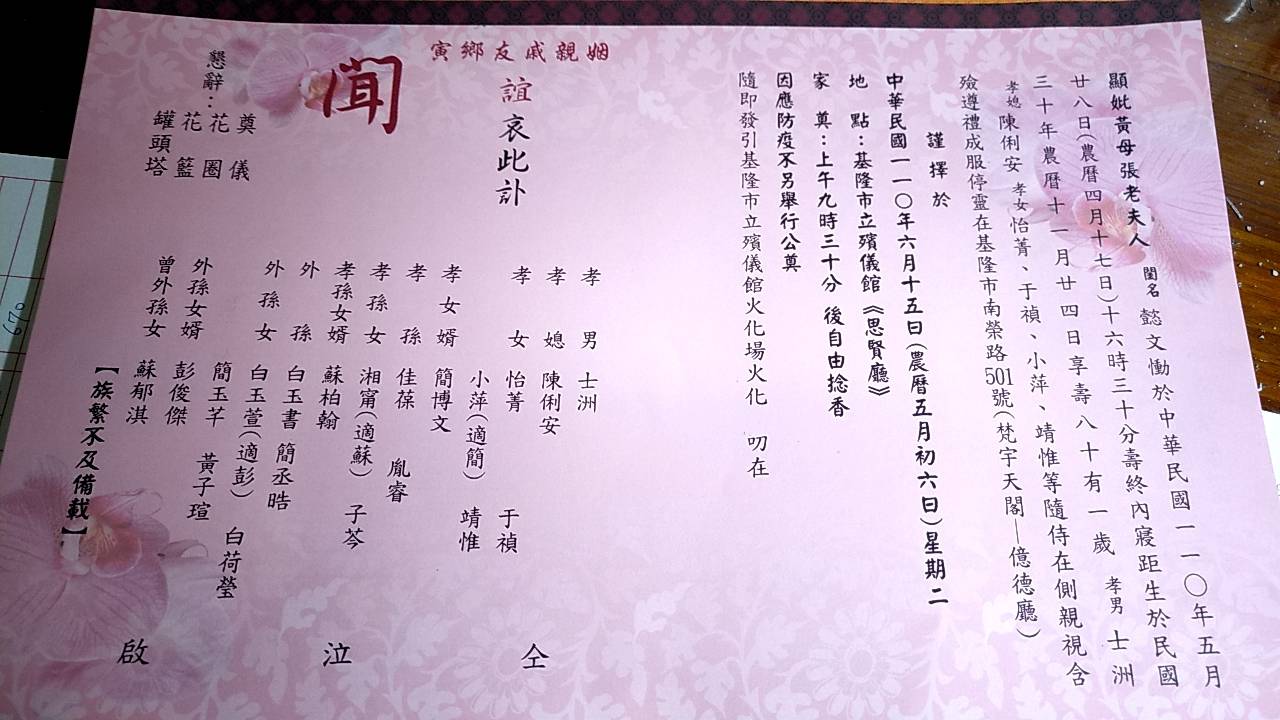 顯妣黃母張老夫人 閨名 懿文慟於中華民國一一〇年五月
廿八日(農曆四月十七日)十六時三十分壽終內寢距生於民國
三十年農曆十一月廿四日享壽八十有一歲 孝男 士洲
孝媳 陳俐安 孝女 怡菁、于禎、小萍、靖惟等隨侍在側親視含
殮遵禮成服停靈在基隆市南榮路501號(梵宇天閣—億德廳)
謹擇於
中華民國一一〇年六月十五日(農曆五月初六日)星期二
地 點:基隆市立殯儀館《思賢廳》
家 奠:上午九時三十分 後自由捻香
因應防疫不另舉行公奠
隨即發引基隆市立殯儀館火化場火化 叨在
寅鄉友戚親姻
誼哀此訃
聞
懇辭:
奠儀
花圈
花籃
罐頭塔
孝男 士洲
孝媳 陳俐安
孝女 怡菁 于禎
小萍(適簡) 靖惟
孝女婿 簡博文
孝孫 佳葆 胤睿
孝孫女 湘甯(適蘇) 子芩
孝孫女婿 蘇柏翰
外孫 白玉書 簡丞晧
外孫女 白玉萱(適彭) 白荷瑩
簡玉芊 黃子瑄
外孫女婿 彭俊傑
曾外孫女 蘇郁淇
【族繁不及備載】
仝
泣
啟